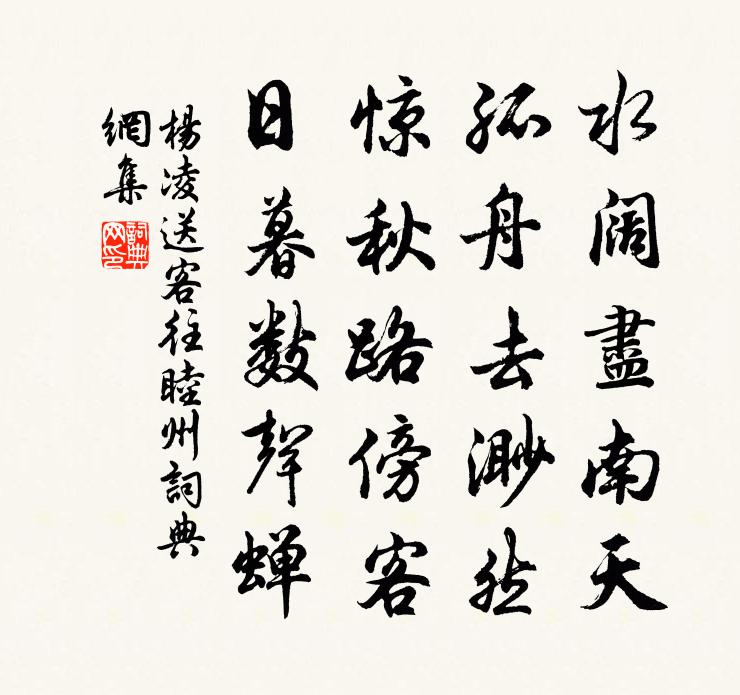 水阔盡南天
孤舟去渺然
惊秋路傍客
日暮数聲蝉
楊凌送客往睦州詞典
網集
詞典网印